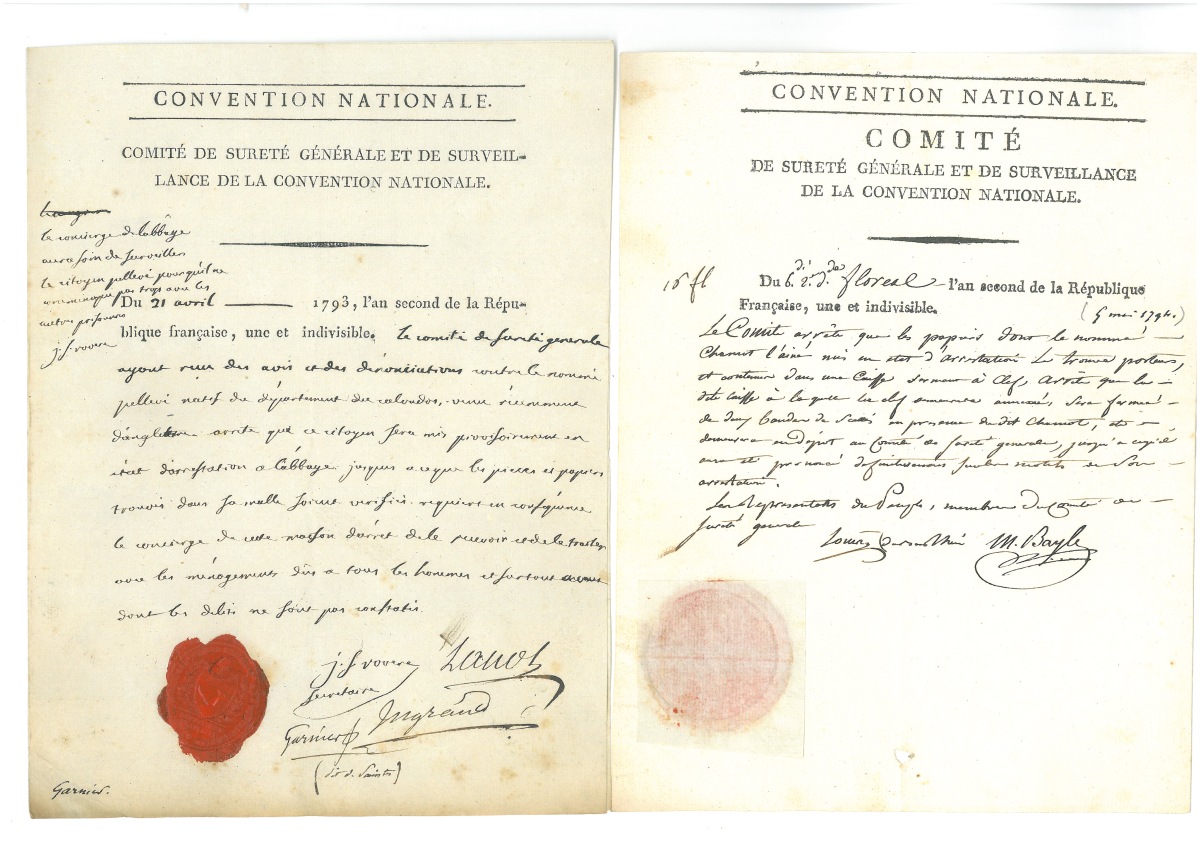 CONVENTION NATIONALE.
COMITÉ DE SURETÉ GÉNÉRALE ET DE SURVEIL-
LANCE DE LA CONVENTION NATIONALE.
le concierge de labbaye
aura soin de surveiller
le citoyen pellevé pour quil ne
communique pas trop avec les
autres prisonniers
j. S. rovere
Du 21 avril 1793, l'an second de la Répu-
blique française, une et indivisible. le comité de sureté generale
ayant reçu des avis et des dénonciations contre le nommé
pellevé natif du département du calvados, venu récemment
d'angleterre arrete que ce citoyen sera mis provisoirement en
état d'arrestation a l'abbaye jusques a ce que les pieces et papiers
trouvés dans sa malle soient verifiés. requiert en conséquence
le concierge de cette maison d'arret de le recevoir et de le traiter
avec les ménagements dûs a tous les hommes et surtout a ceux
dont les délits ne sont pas constatés.
j. S rovere
secretaire
Lanot
Ingrand
Garnier
(dit d. Saintes)
Garnier.
CONVENTION NATIONALE.
COMITÉ
DE SURETÉ GÉNÉRALE ET DE SURVEILLANCE
DE LA CONVENTION NATIONALE.
16 fl
Du 6. floreal l'an second de la République
Française, une et indivisible.
(5 mai 1794.)
Le Comité arrête que les papiers dont le nommé
Chamot l'ainé mis en etat d'arrestation Se trouve porteur,
et contenus dans une Caisse fermant à Clef, arrête que la
dite caisse à laquelle la clef demeurera annexée, Sera fermée
de deux bandes de Scellés en presence dudit Chamot, et
demeurera en depot au Comité de Sureté generale, jusqu'à ce qu'il
aura été prononcé définitivement sur les motifs de Son
arrestation.
Les Représentants du Peuple, membres du Comité de
Sureté generale
Louis du bas Rhin M. Bayle